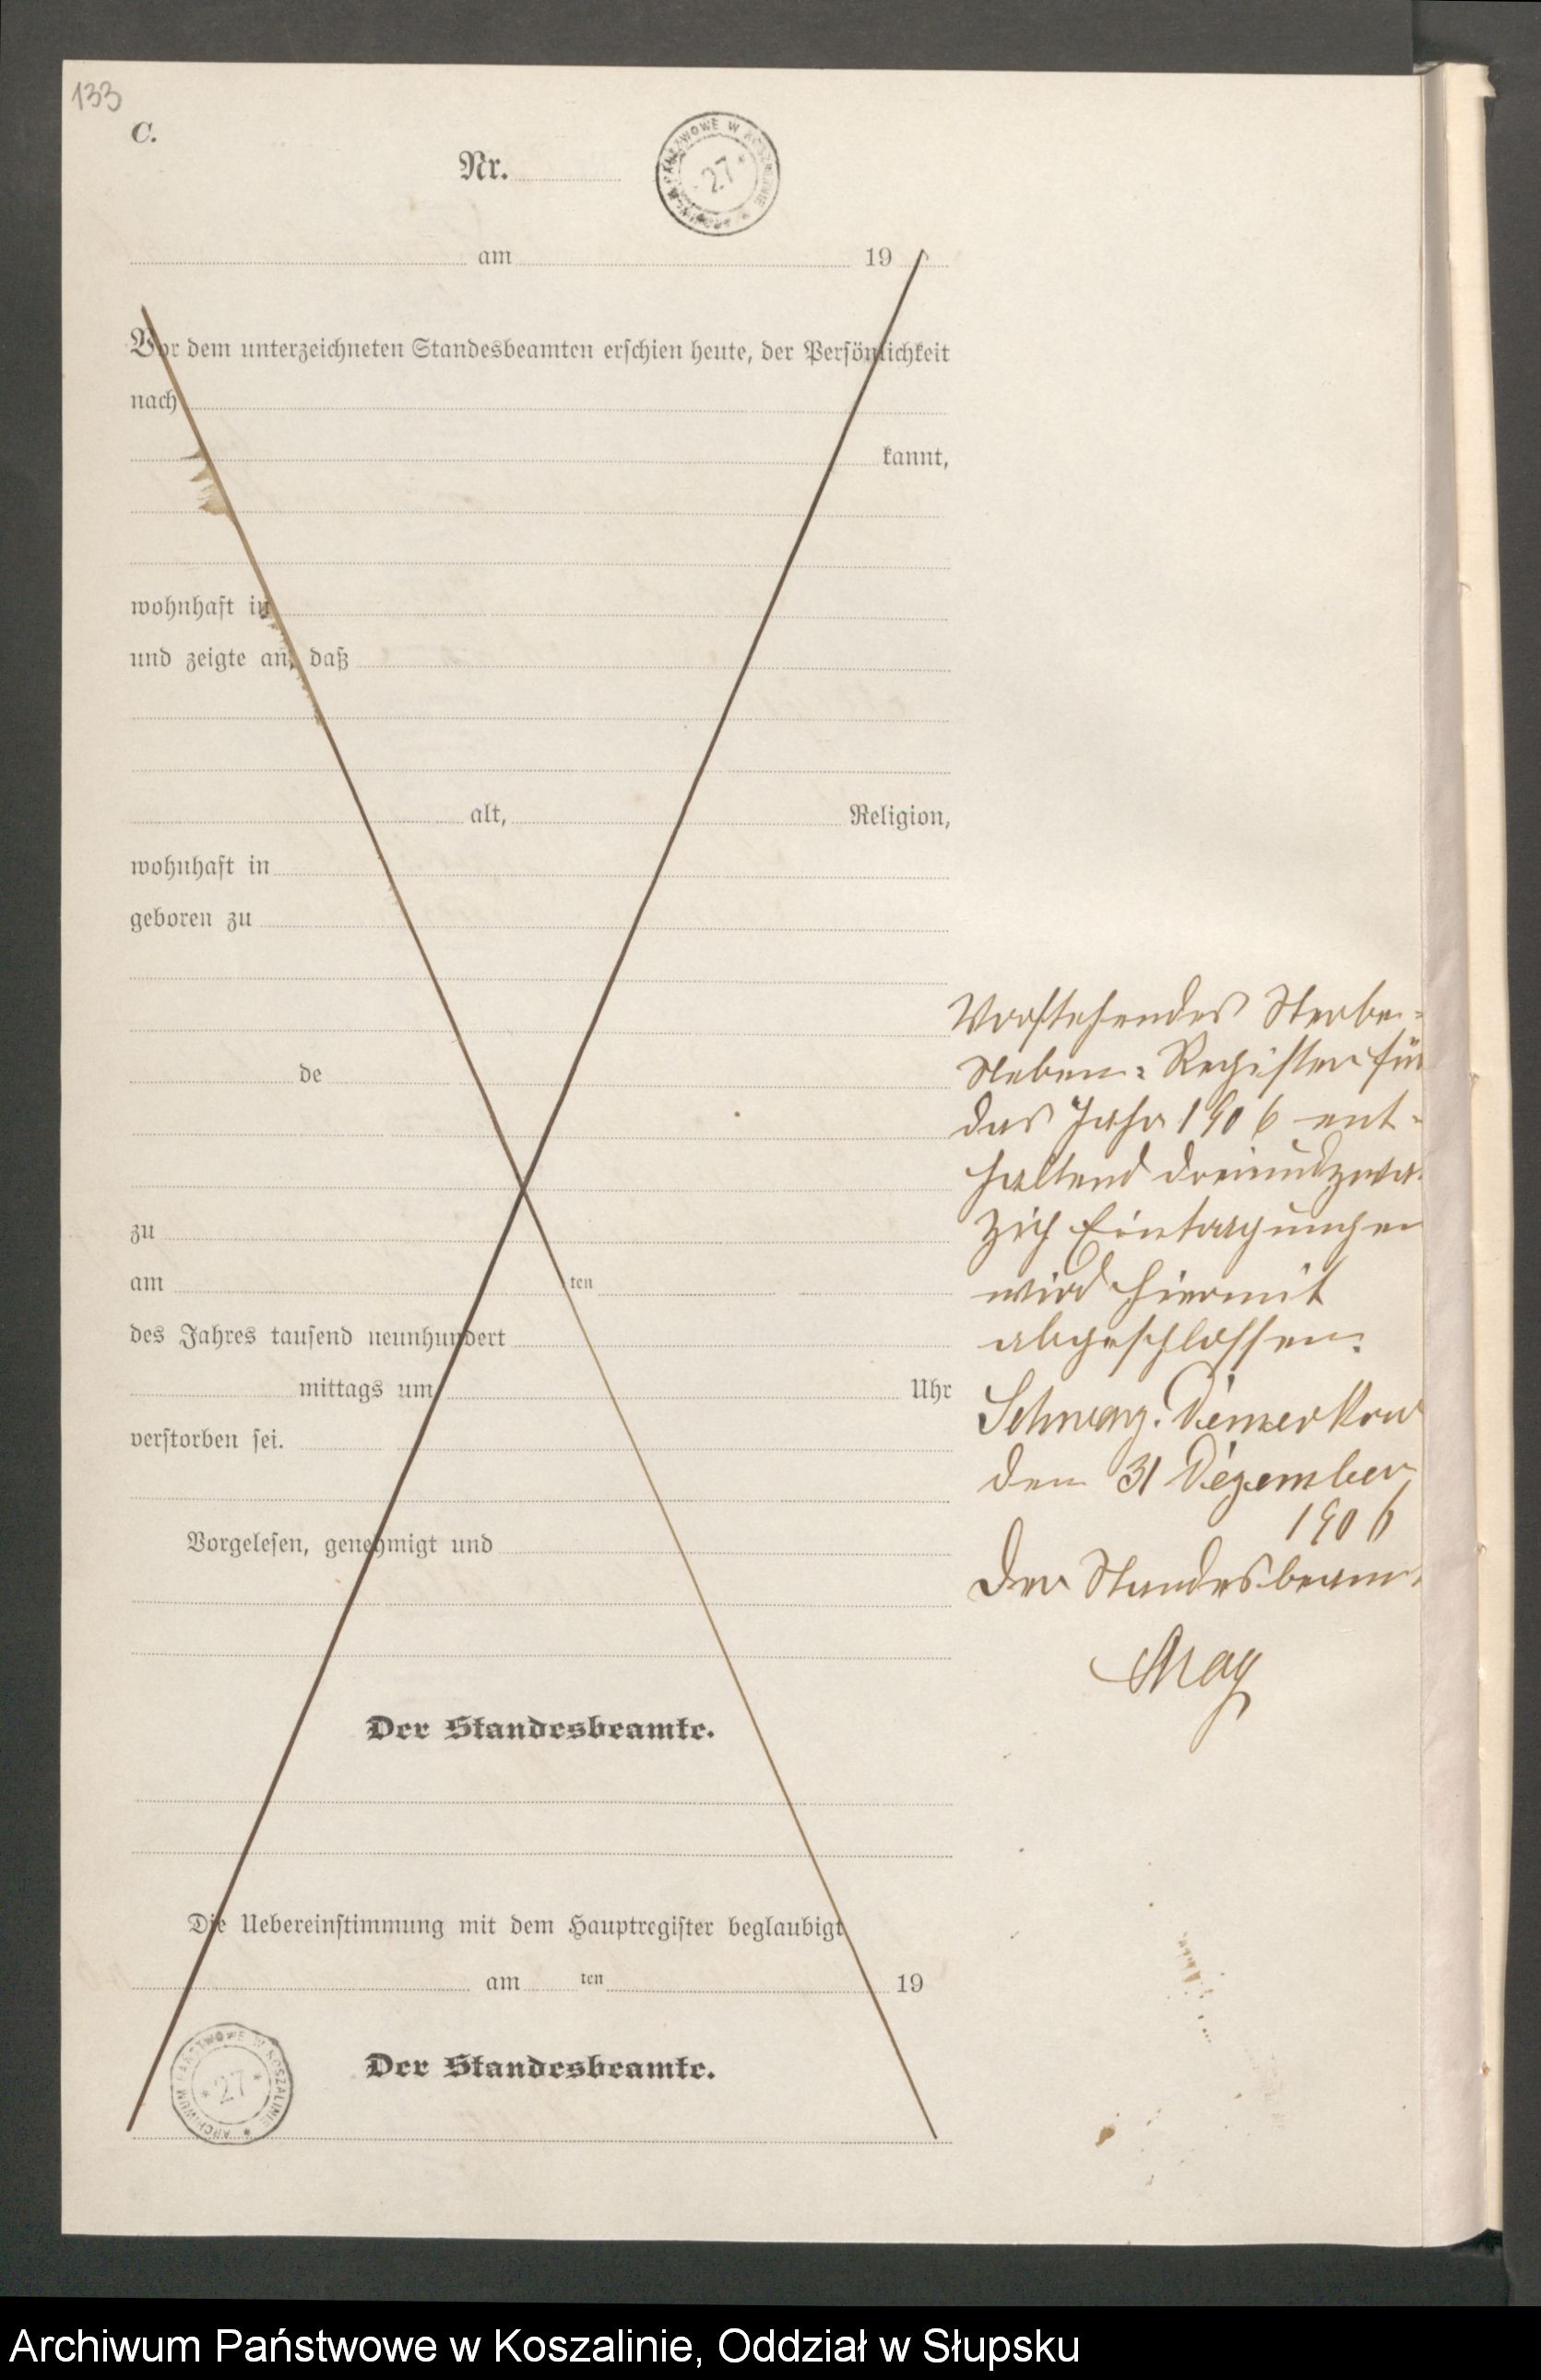 133
C.
Nr.
ARCHIWUM PAŃSTWOWE W KOSZALINIE * 27 *
am 19
Vor dem unterzeichneten Standesbeamten erschien heute, der Persönlichkeit
nach
kannt,
wohnhaft in
und zeigte an, daß
alt, Religion,
wohnhaft in
geboren zu
de
zu
am ten
des Jahres tausend neunhundert
mittags um Uhr
verstorben sei.
Vorgelesen, genehmigt und
Der Standesbeamte.
Die Uebereinstimmung mit dem Hauptregister beglaubigt
am ten 19
Der Standesbeamte.
ARCHIWUM PAŃSTWOWE W KOSZALINIE * 27 *
Vorstehendes Sterbe-
Neben-Register für
das Jahr 1906 ent-
haltend dreiundzwa
zig Eintragungen
wird hiermit
abgeschlossen.
Schwarz. Damerkow
den 31 Dezember
1906
Der Standesbeam
Archiwum Państwowe w Koszalinie, Oddział w Słupsku